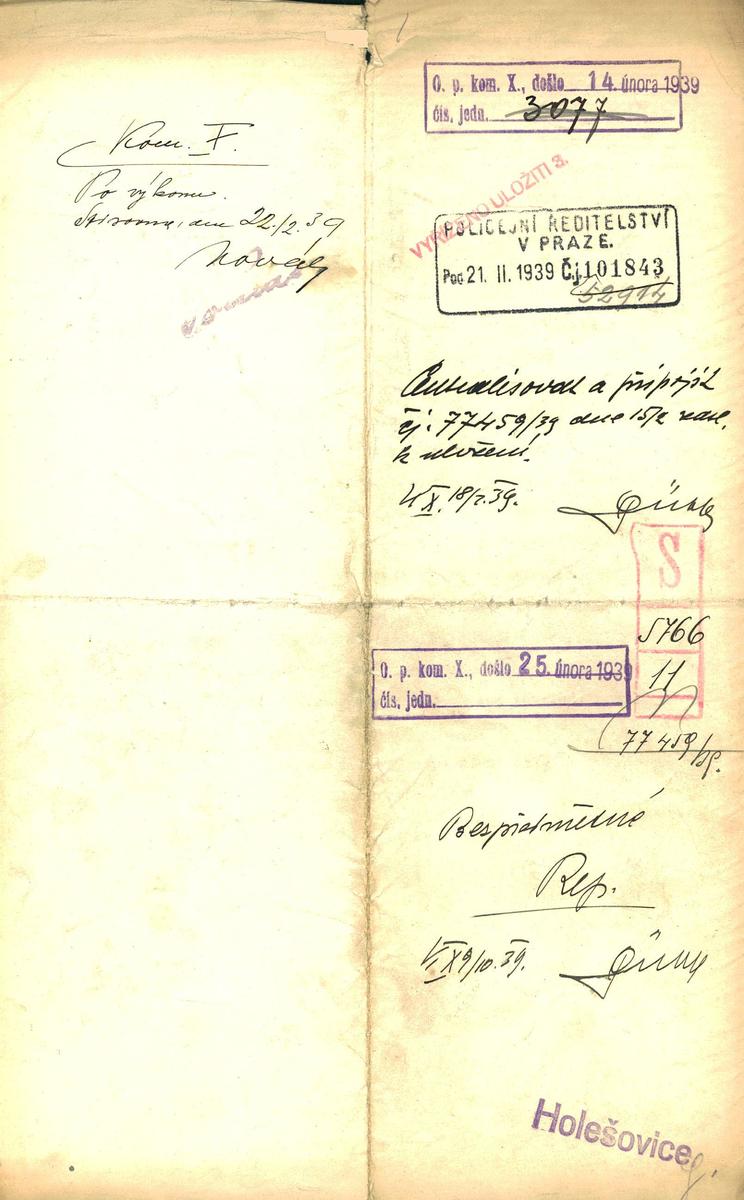 Kom. X.
Po výkonu.
dne 22./2. 39
Novák
O. p. kom. X., došlo 14. února 1939
čís. jedn. 3077
VYŘÍZENO ULOŽITI
POLICEJNÍ ŘEDITELSTVÍ
V PRAZE.
Pod 21. II. 1939 Čj 101843
52914
a připojit
čj. 77459/39 dne 15/2
k uložení.
K X. 18/2. 39.
S
5766
11
O. p. kom. X., došlo 25. února 1939
čís. jedn.
77459/39.
Bezpředmětné
Rep.
K X 9/10. 39.
Holešovice